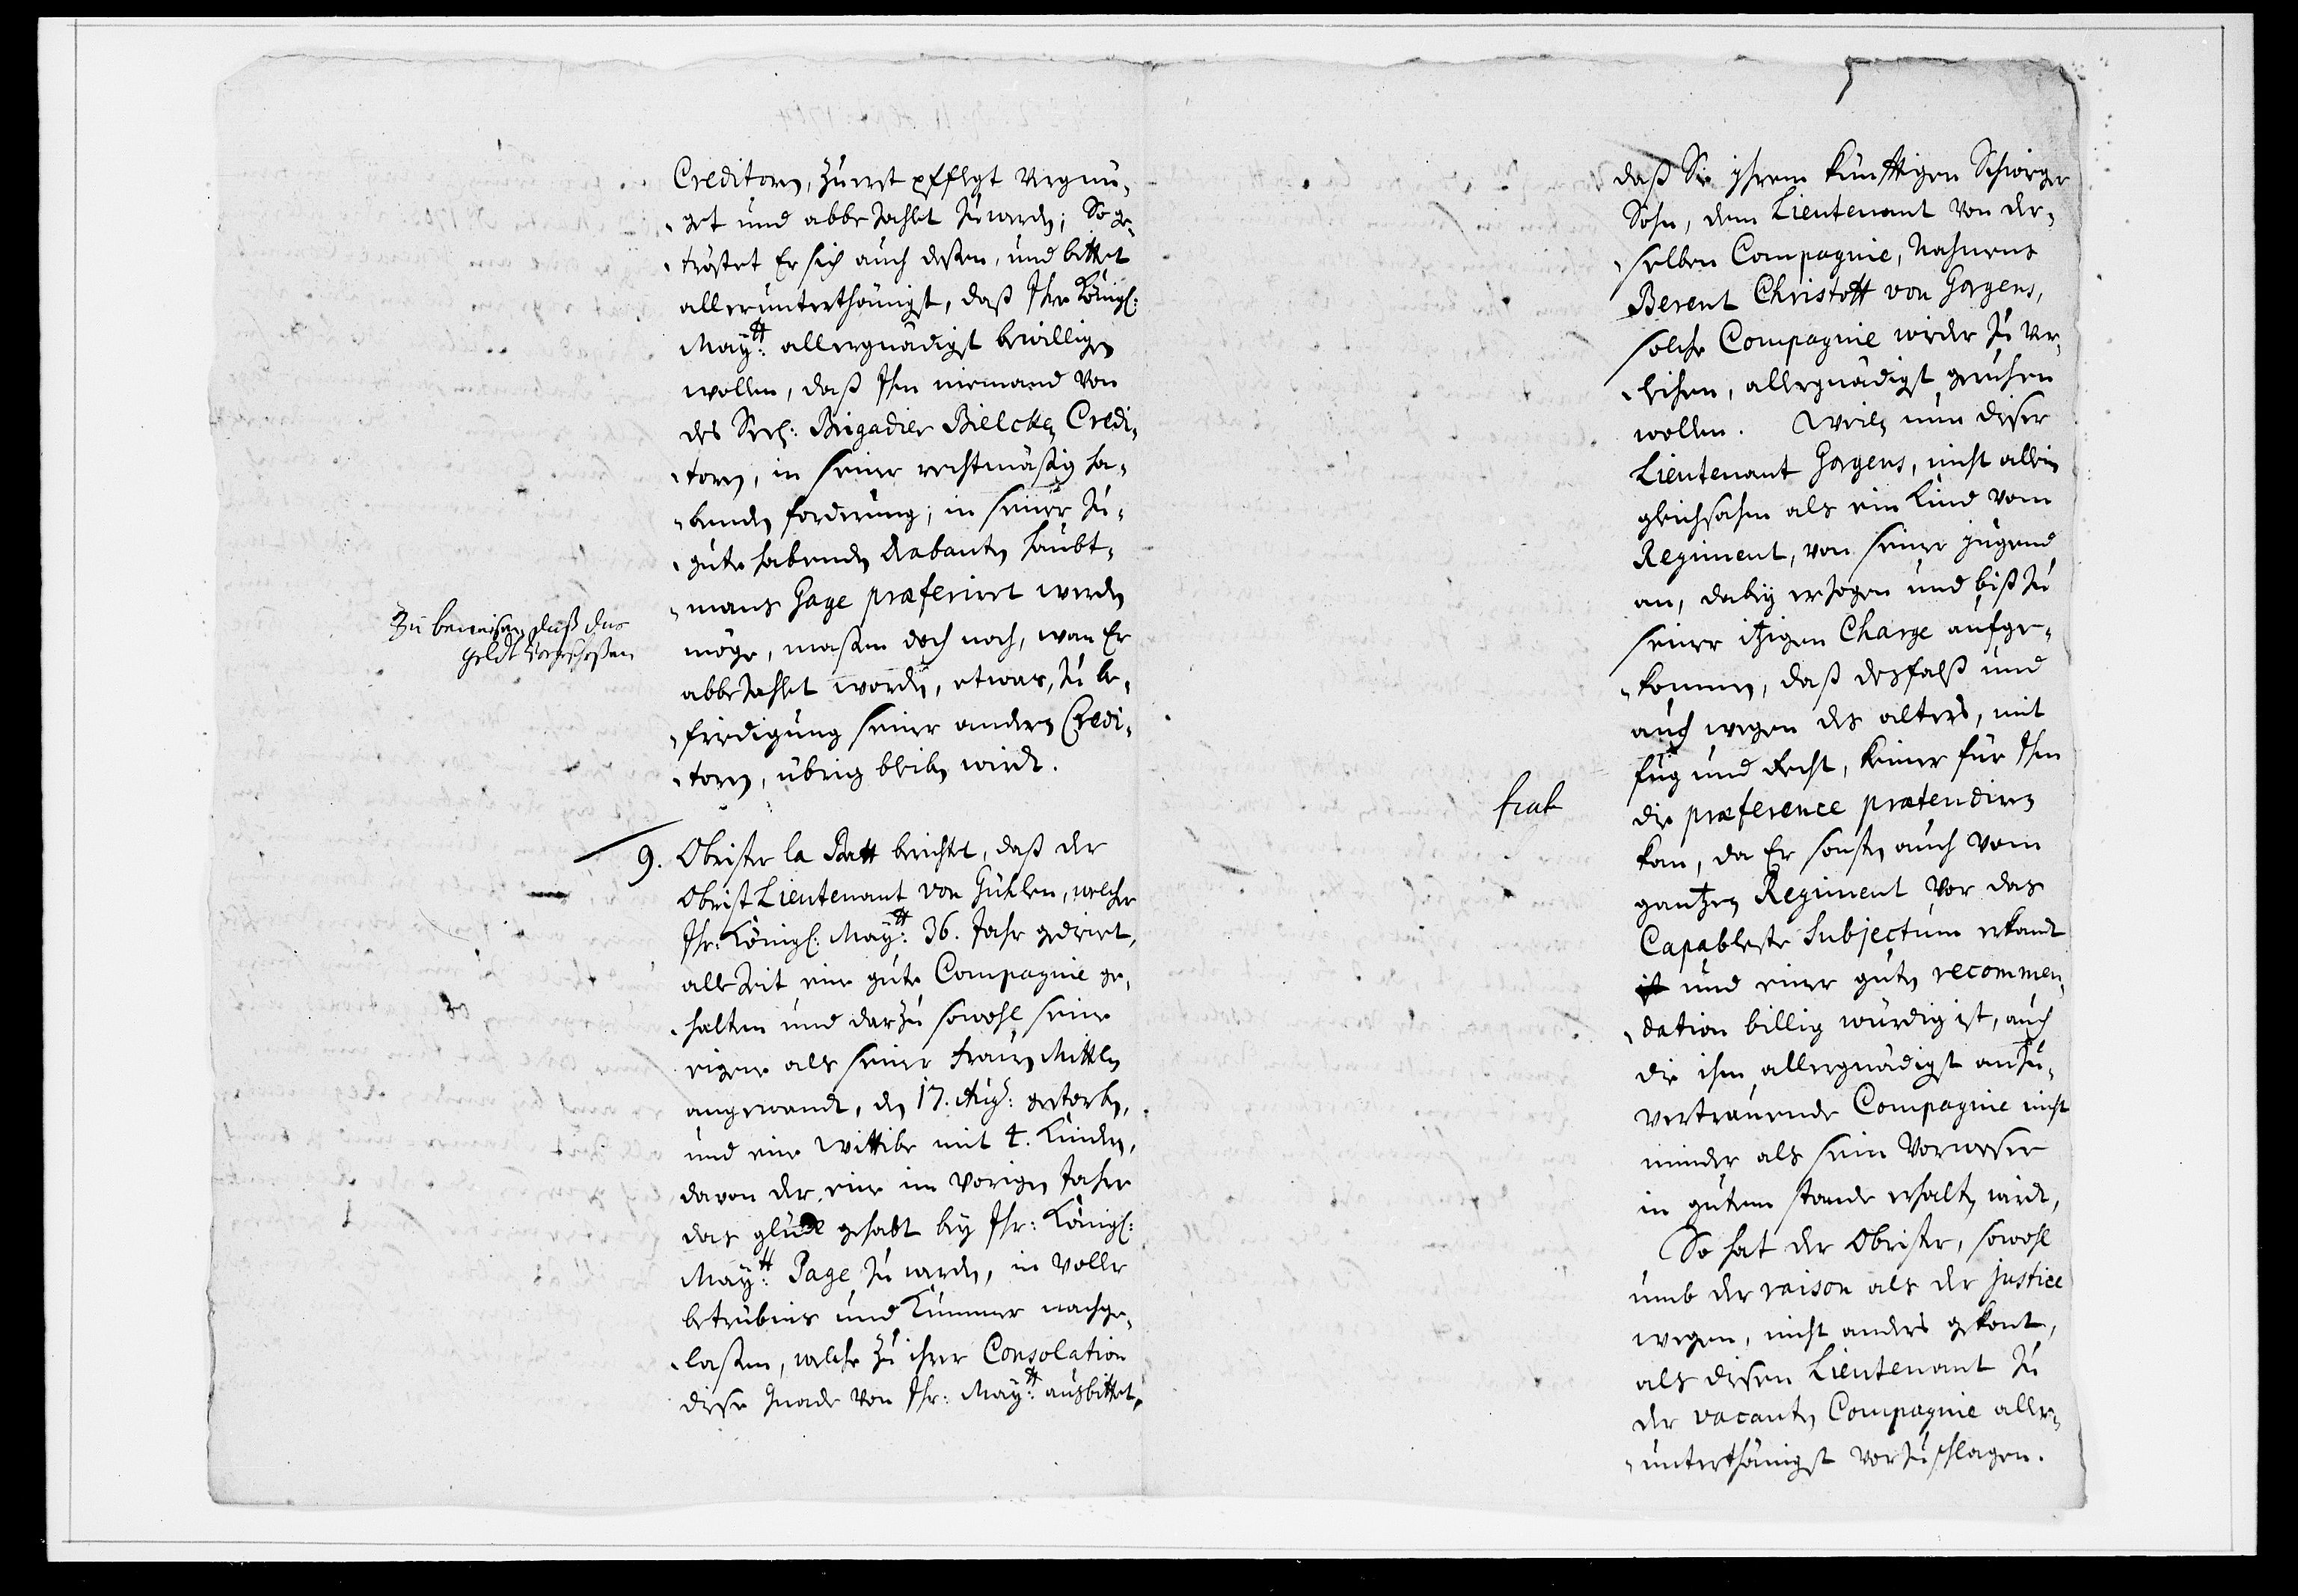 Creditorn, zuerst pfflegt vergnü¬
get und abbezahlet zu werden; So ge¬
tröstet Er sich auch deßen, und bittet
allerunterthänigst, daß Ihr Königl:
Maytt: allergnädigst bewilligen
wollen, daß Ihm niemand von
des Seel: Brigadier Bielcken Credi¬
torn, in seiner rechtmäßig ha¬
benden forderung; in seiner zu¬
gute habenden Drabanten Haubt¬
mans Gage præferiret werden
Zu beweisen daß das
geldt vorgeschoßen
möge, maßen doch noch, wan Er
abbezahlet worden, etwas, zu be¬
friedigung seiner andern Credi¬
torn, übrig bleiben wird.
9. Obrister la Patt berichtet, daß der
Obrist Lieutenant von Gühlen, welcher
Ihr: Königl: Maytt: 36. Jahr gedienet,
allezeit eine gute Compagnie ge¬
halten und darzu sowohl seine
eigene als seiner frauen Mitteln
angewandt, den 17. Aug: gestorben,
und eine Wittibe mit 4. Kinder,
davon der eine im vorigen Jahre
das glück gehabt bey Ihr: Königl:
Maytt: Page zu werden, in voller
betrübnis und Kummer nachge¬
laßen, welche zu ihrer Consolation
diese Gnade von Ihr: Maytt: ausbittet,
daß Sie ihrem künfftigen Schwieger
Sohn, dem Lieutenant von der¬
selben Compagnie, Nahmens
Berent Christoff von Gorgens,
solche Compagnie wieder zu ver¬
leihen, allergnädigst geruhen
wollen. Weilen nun dieser
Lieutenant Gorgens, nicht allein
gleichsahm als ein Kind vom
Regiment, von seiner jugend
an, dabey erzogen und biß zu
seiner itzigen Charge aufge¬
kommen, daß desfalß und
auch wegen des alters, mit
fug und Recht, keiner für Ihm
die præference prætendiren
kan, da Er sonsten auch vom
gantzen Regiment vor das
Capableste Subjectum erkandt
ist und einer guten recommen¬
dation billig würdig ist, auch
die ihm allergnädigst anzu¬
vertrauende Compagnie nicht
minder als sein Vorweser
in gutem stande erhalten wird,
So hat der Obrister, sowohl
umb der raison als der justice
wegen, nicht anders gekont,
als diesen Lieutenant zu
der vacanten Compagnie aller¬
unterthänigst vorzuschlagen.